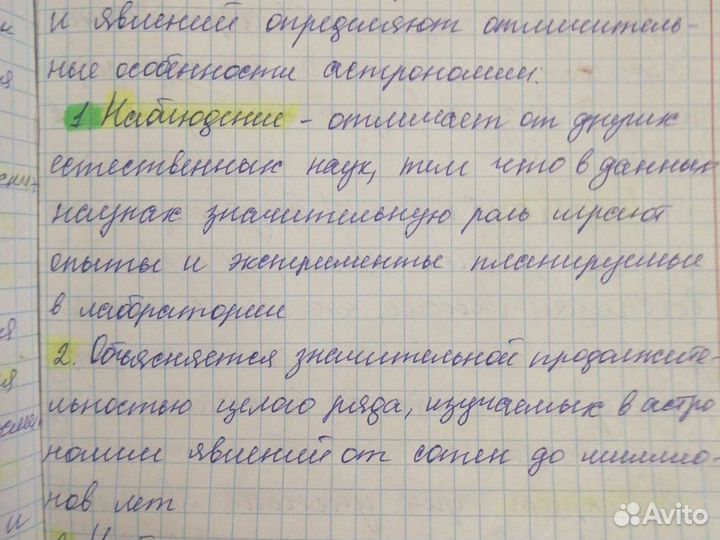 и явлений определяют отличитель-
ные особенности астрономии:
1 Наблюдение - отличает от других
естественных наук, тем что в данных
науках значительную роль играют
опыты и эксперименты планируемые
в лаборатории
2. Объясняется значительной продолжите-
льностью целого ряда, изучаемых в астро
номии явлений от сотен до миллио-
нов лет
и
Avito